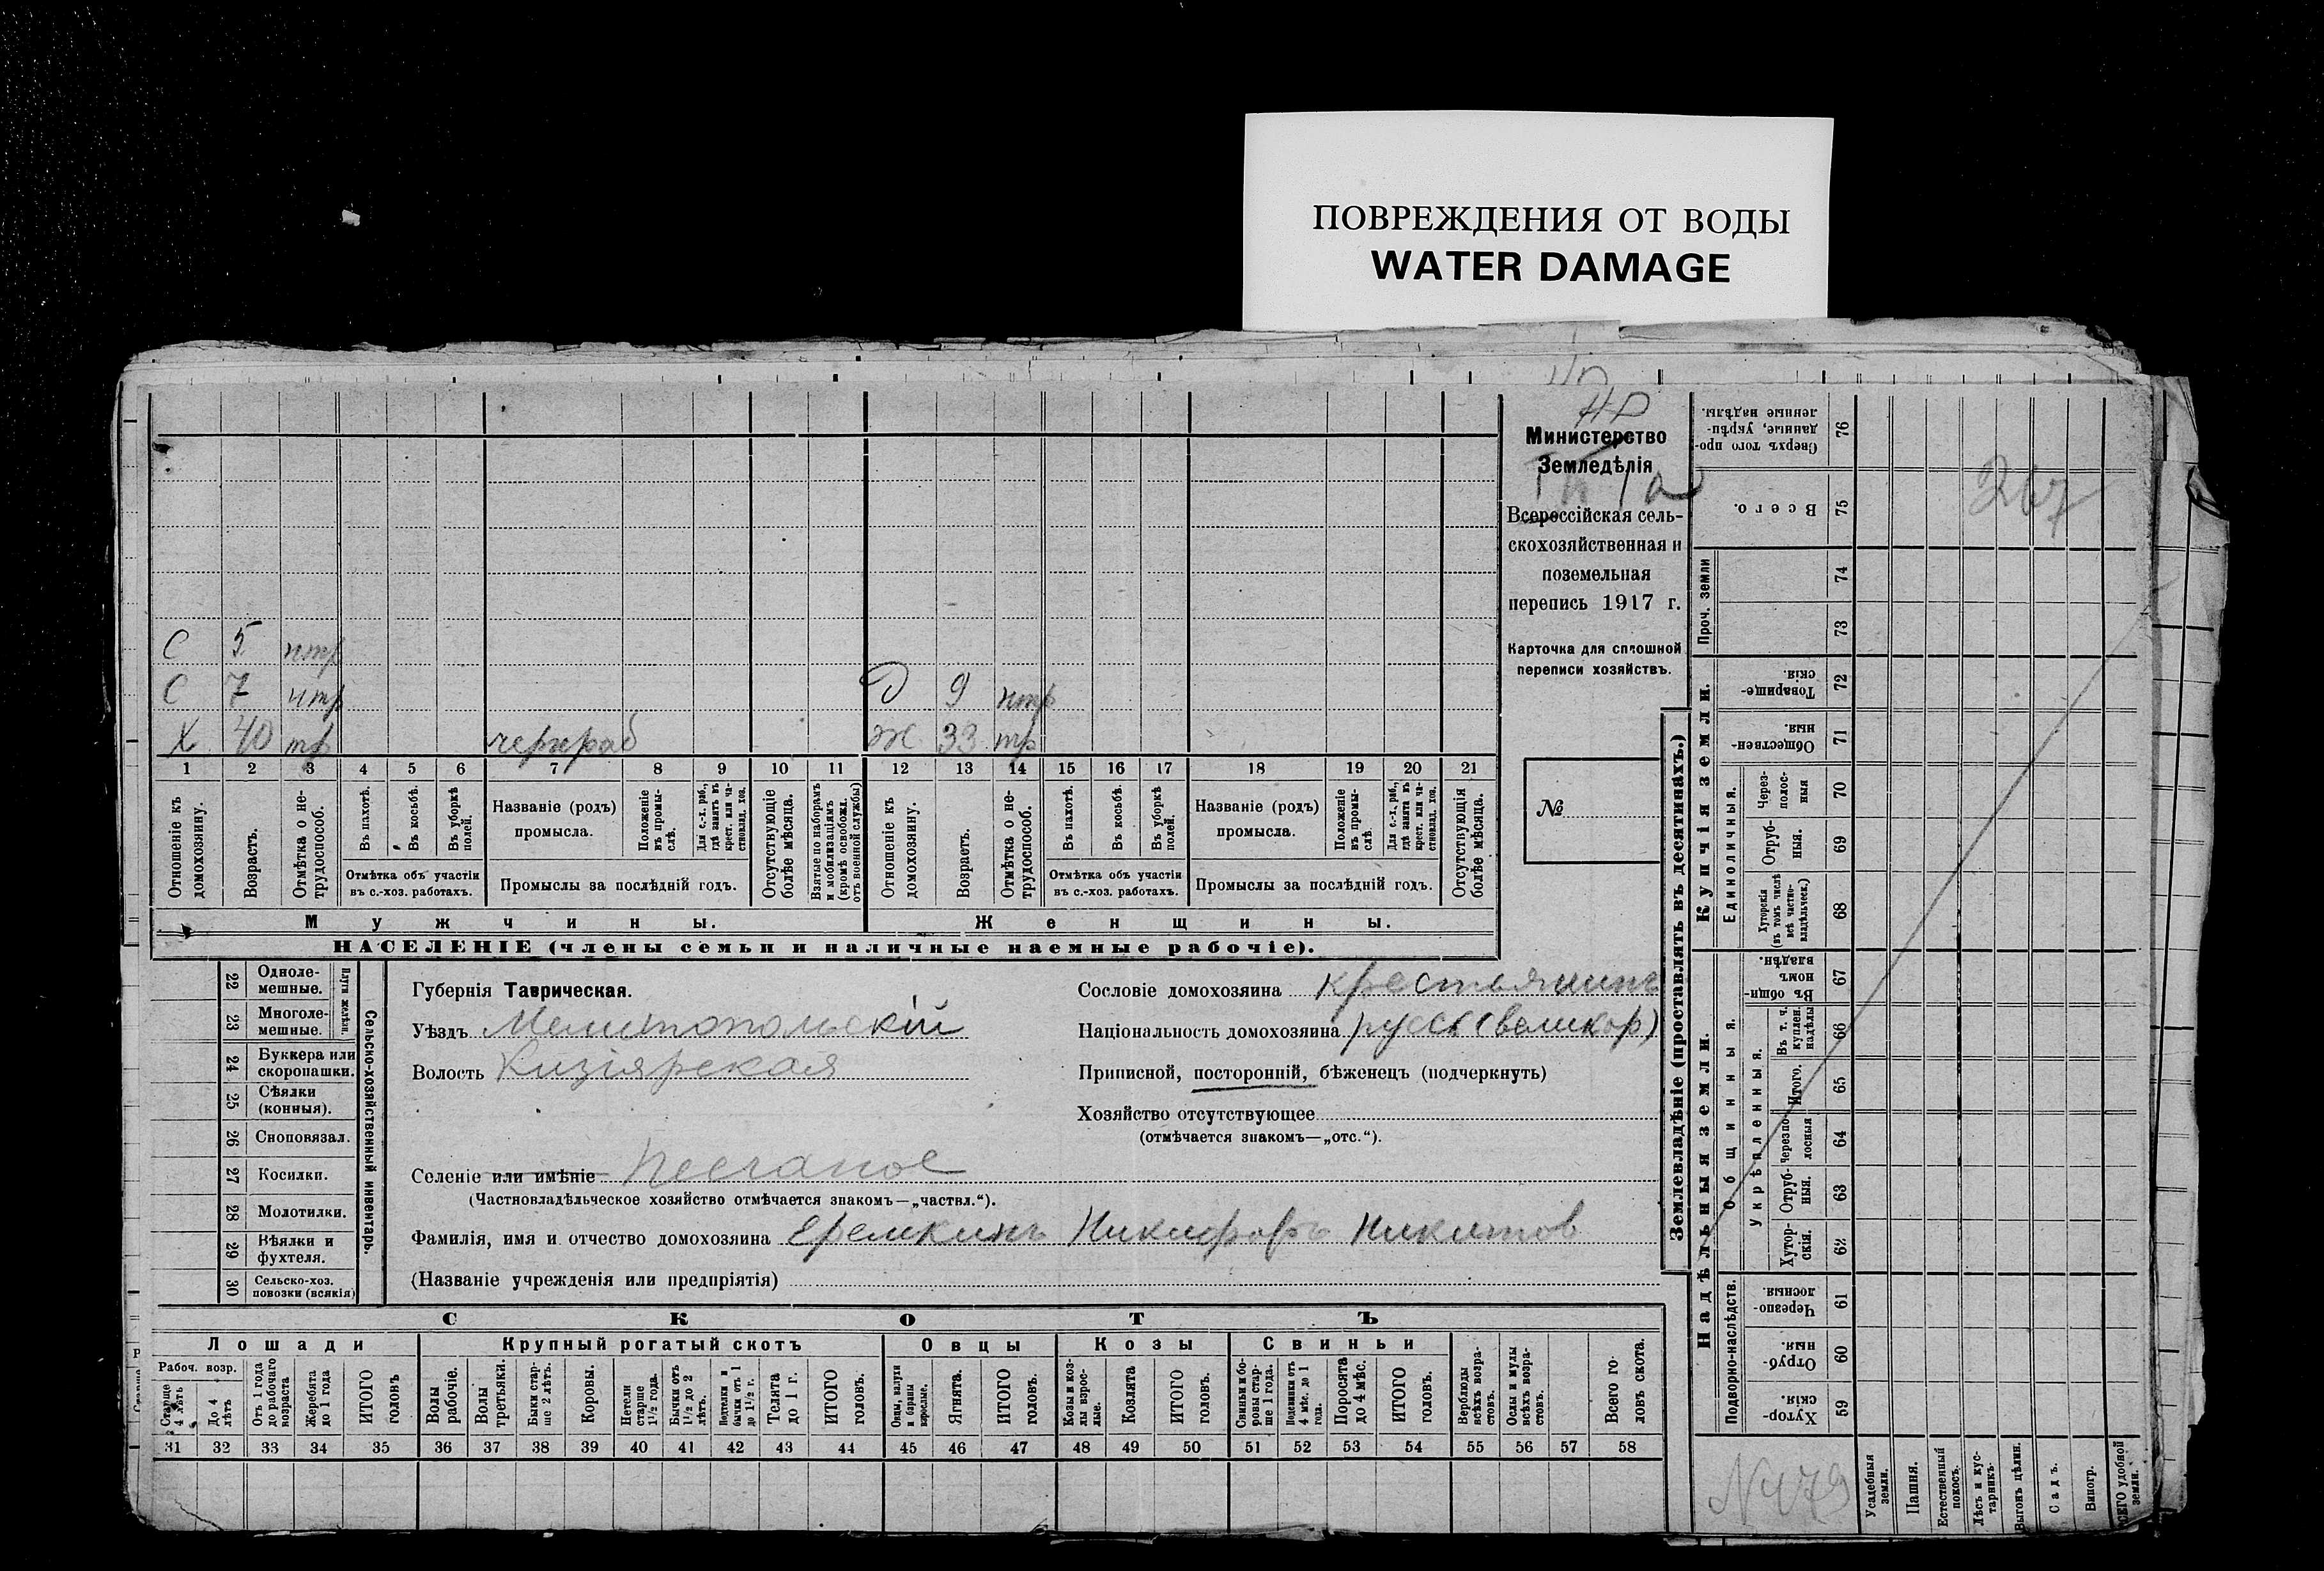 ПОВРЕЖДЕНИЯ ОТ ВОДЫ
WATER DAMAGE
Министерство
Земледѣлія
Всероссійская сель-
скохозяйственная и
поземельная
перепись 1917 г.
Карточка для сплошной
переписи хозяйствъ.
№
С 5 нтр
С 7 нтр Д 9 нтр
Х 40 тр чернраб Ж 33 тр
1 2 3 4 5 6 7 8 9 10 11 12 13 14 15 16 17 18 19 20 21
Отношеніе къ домохозяину.
Возрастъ.
Отмѣтка о не-трудоспособ.
Въ пахотѣ.
Въ косьбѣ.
Въ уборкѣ полей.
Отмѣтка объ участіи
въ с.-хоз. работахъ.
Названіе (родъ)
промысла.
Положеніе въ промы-слѣ.
Для с.-х. раб., гдѣ занятъ въ крест. или ча-стновлад. хоз.
Промыслы за послѣдній годъ.
Отсутствующіе болѣе мѣсяца.
Взятые по наборамъ и мобилизаціямъ (кромѣ освобожд. отъ военной службы)
Отношеніе къ домохозяину.
Возрастъ.
Отмѣтка о не-трудоспособ.
Въ пахотѣ.
Въ косьбѣ.
Въ уборкѣ полей.
Отмѣтка объ участіи
въ с.-хоз. работахъ.
Названіе (родъ)
промысла.
Положеніе въ промы-слѣ.
Для с.-х. раб., гдѣ занята въ крест. или ча-стновлад. хоз.
Промыслы за послѣдній годъ.
Отсутствующія болѣе мѣсяца.
Мужчины. Женщины.
НАСЕЛЕНІЕ (члены семьи и наличные наемные рабочіе).
22 Одноле-мешные.
23 Многоле-мешные.
Плуги желѣзн.
24 Буккера или скоропашки.
25 Сѣялки (конныя).
26 Сноповязал.
27 Косилки.
28 Молотилки.
29 Вѣялки и фухтеля.
30 Сельско-хоз. повозки (всякія)
Сельско-хозяйственный инвентарь.
Губернія Таврическая.
Уѣздъ Мелитопольскій
Волость Кизіярская
Сословіе домохозяина крестьянинъ
Національность домохозяина русск (великор)
Приписной, посторонній, бѣженецъ (подчеркнуть)
Хозяйство отсутствующее
(отмѣчается знакомъ—„отс.“).
Селеніе или имѣніе Песчаное
(Частновладѣльческое хозяйство отмѣчается знакомъ—„частвл.“).
Фамилія, имя и отчество домохозяина Еремкинъ Никифоръ Никитов
(Названіе учрежденія или предпріятія)
СКОТЪ
Лошади Крупный рогатый скотъ Овцы Козы Свиньи
Рабоч. возр.
Старше 4 лѣтъ
До 4 лѣтъ
Отъ 1 года до рабочаго возраста
Жеребята до 1 года
ИТОГО головъ
Волы рабочіе.
Волы третьяки.
Быки стар-ше 2 лѣтъ.
Коровы.
Нетели старше 1½ года.
Бычки отъ 1½ до 2 лѣтъ.
Подтелки и бычки отъ 1 до 1½ г.
Телята до 1 г.
ИТОГО головъ.
Овцы, валухи и бараны взрослые.
Ягнята.
ИТОГО головъ.
Козы и коз-лы взрос-лые.
Козлята
ИТОГО головъ.
Свиньи и бо-ровы стар-ше 1 года.
Подсвинки отъ 4 мѣс. до 1 года.
Поросята до 4 мѣс.
ИТОГО головъ.
Верблюды всѣхъ возра-стовъ.
Ослы и мулы всѣхъ возра-стовъ.
Всего го-ловъ скота.
31 32 33 34 35 36 37 38 39 40 41 42 43 44 45 46 47 48 49 50 51 52 53 54 55 56 57 58
Землевладѣніе (проставлять въ десятинахъ.)
Сверхъ того про-данные, укрѣп-ленные надѣлы. 76
Всего. 75
Проч. земли 74
73
Купчія земли.
Товарище-скія. 72
Обществен-ныя. 71
Единоличныя.
Через-полос-ныя 70
Отруб-ныя. 69
Хуторскія (въ томъ числѣ всѣ частно-владѣльческ.) 68
Надѣльныя земли.
Общинныя.
Въ общи-номъ владѣн. 67
Укрѣпленныя.
Въ т. ч. куплен. надѣлы 66
Итого. 65
Черезпо-лосныя 64
Отруб-ныя. 63
Хутор-скія. 62
Подворно-наслѣдств.
Черезпо-лосныя 61
Отруб-ныя. 60
Хутор-скія. 59
Усадебныя земли.
Пашня.
Естественный покосъ.
Лѣсъ и кус-тарникъ.
Выгонъ цѣлин.
Садъ.
Виногр.
ВСЕГО удобной земли.
267
N479